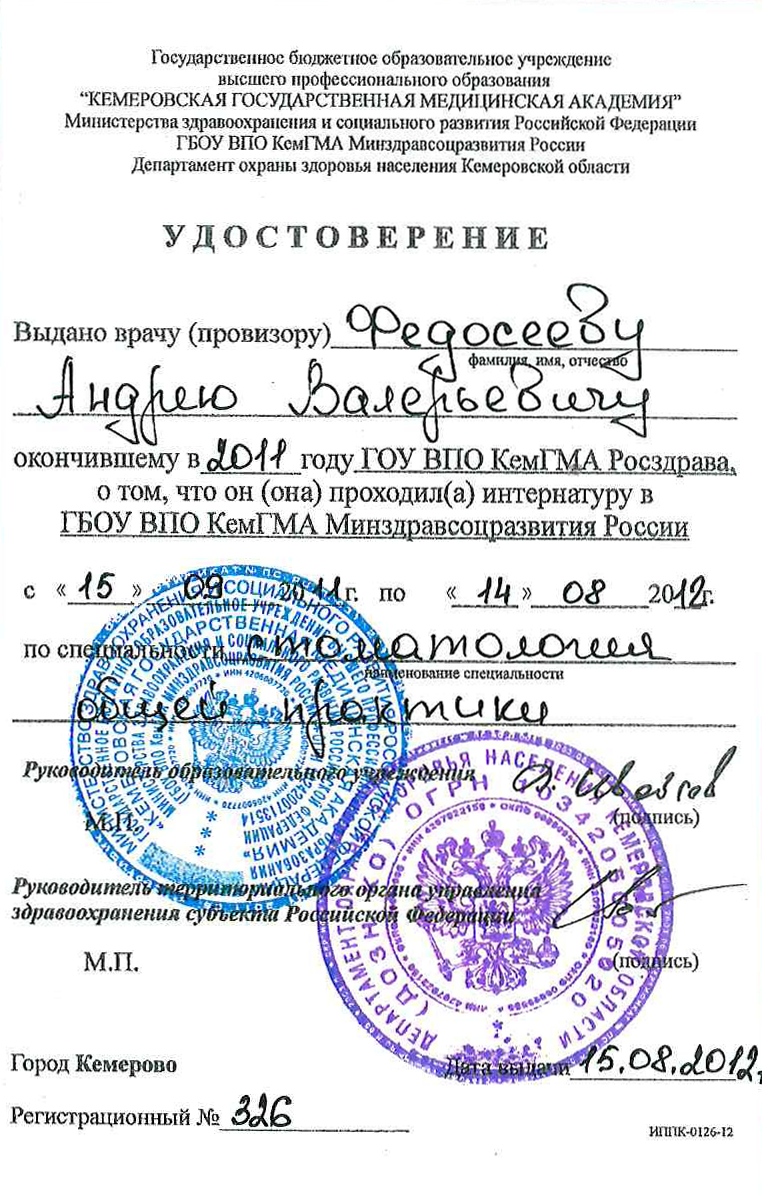 Государственное бюджетное образовательное учреждение
высшего профессионального образования
"КЕМЕРОВСКАЯ ГОСУДАРСТВЕННАЯ МЕДИЦИНСКАЯ АКАДЕМИЯ"
Министерства здравоохранения и социального развития Российской Федерации
ГБОУ ВПО КемГМА Минздравсоцразвития России
Департамент охраны здоровья населения Кемеровской области
УДОСТОВЕРЕНИЕ
Выдано врачу (провизору) Федосееву
фамилия, имя, отчество
Андрею Валерьевичу
окончившему в 2011 году ГОУ ВПО КемГМА Росздрава,
о том, что он (она) проходил(а) интернатуру в
ГБОУ ВПО КемГМА Минздравсоцразвития России
с «15» 09 2011г. по «14» 08 2012г.
по специальности стоматология
наименование специальности
общей практики
Руководитель образовательного учреждения
М.П. (подпись)
Руководитель территориального органа управления
здравоохранения субъекта Российской Федерации
М.П. (подпись)
Город Кемерово Дата выдачи 15.08.2012г
Регистрационный № 326
ИППК-0126-12